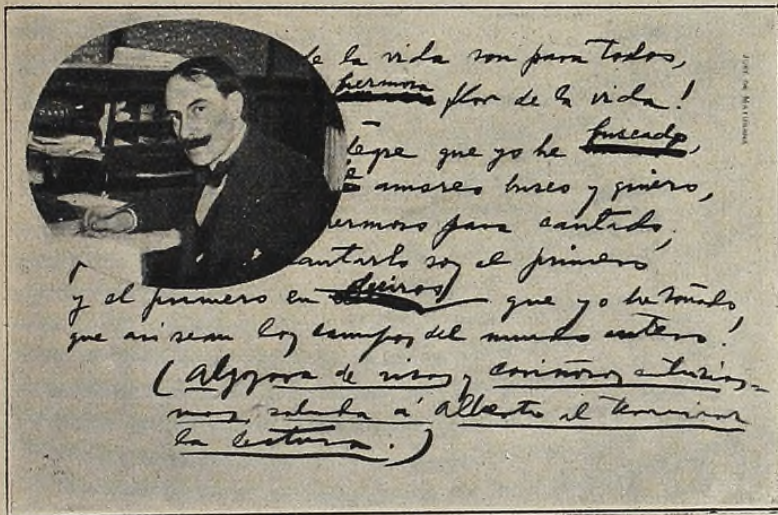 de la vida son para todos,
hermosa flor de la vida!
que yo he buscado,
amores busco y quiero,
hermoso para cantado,
cantarlo soy el primero
y el primero en deciros que yo he soñado
que así sean los campos del mundo entero!
(Algazara de risas y cariñosos entusias-
mos, saluda á Alberto al terminar
la lectura.)